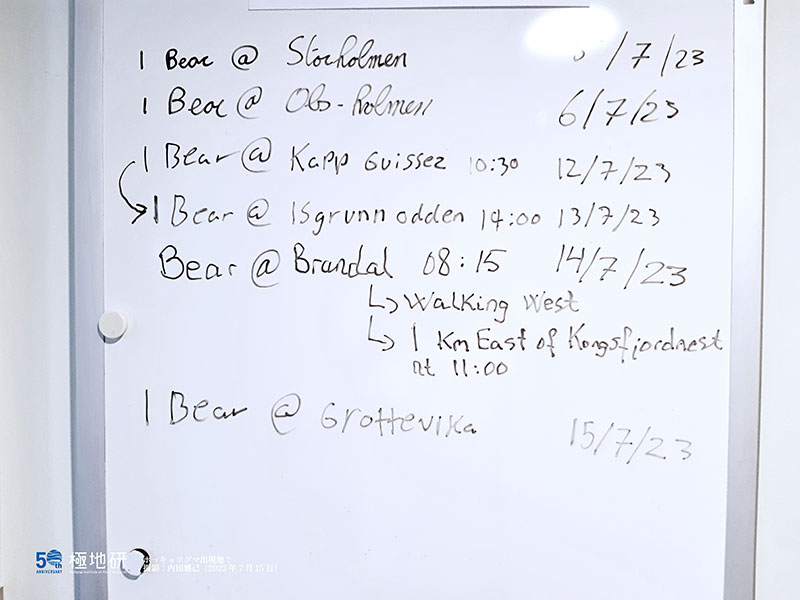 1 Bear @ Storholmen /7/23
1 Bear @ Obs-holmen 6/7/23
1 Bear @ Kapp Guissez 10:30 12/7/23
1 Bear @ Isgrunnodden 14:00 13/7/23
Bear @ Brandal 08:15 14/7/23
↳ Walking West
↳ 1 Km East of Kongsfjordnest
at 11:00
1 Bear @ Grottevika 15/7/23
50th ANNIVERSARY 極地研
ホッキョクグマ出現地?
撮影:内田雅己(2023年7月15日)